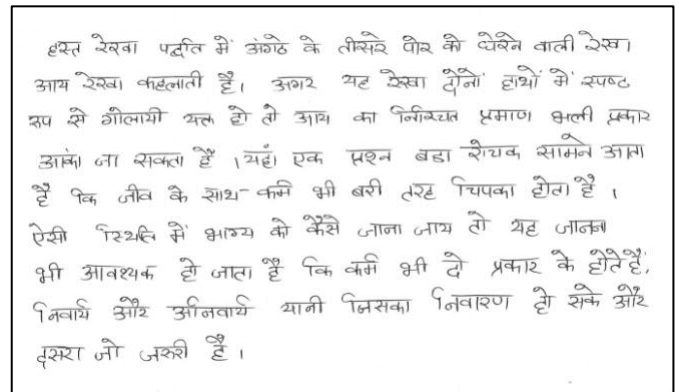 हस्त रेखा पद्धति में अंगठे के तीसरे पोर को घेरने वाली रेखा
आय रेखा कहलाती है। अगर यह रेखा दोनों हाथों में स्पष्ट
रुप से गोलायी यक्त हो तो आय का निश्चित प्रमाण भली प्रकार
आंका जा सकता है । यहां एक प्रश्न बडा रोचक सामने आता
है कि जीव के साथ- कर्म भी बरी तरह चिपका होता है ।
ऐसी स्थिति में भाग्य को कैसे जाना जाय तो यह जानना
भी आवश्यक हो जाता है कि कर्म भी दो प्रकार के होते हैं,
निवार्य और अनिवार्य यानी जिसका निवारण हो सके और
दसरा जो जरुरी है ।